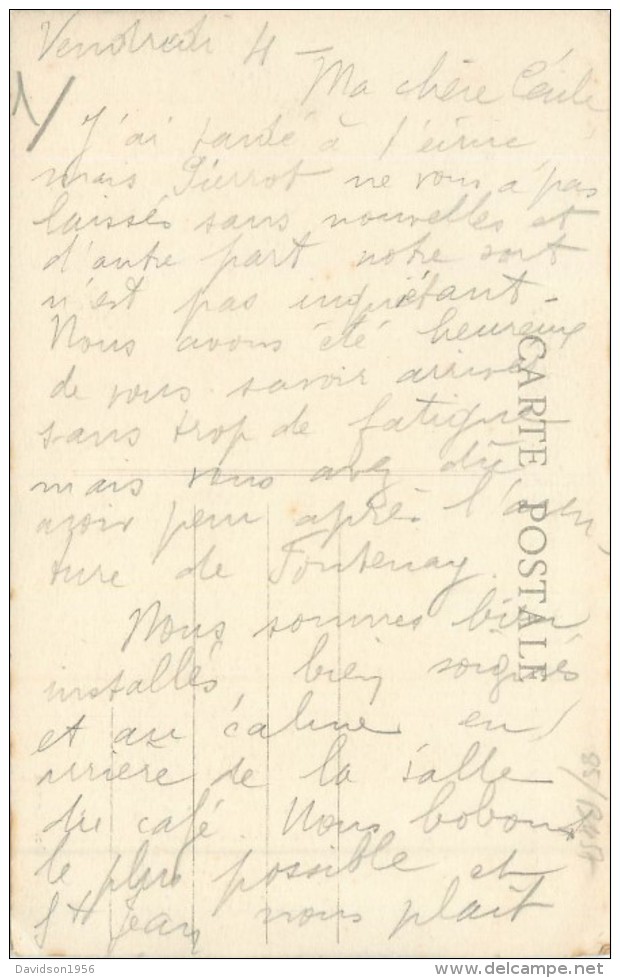 Vendredi 4 –
Ma chère Cécile
1/
J'ai tardé à t'écrire
mais Pierrot ne vous a pas
laissés sans nouvelles et
d'autre part notre sort
n'est pas inquiétant.
Nous avons été heureux
de vous savoir arrivés
sans trop de fatigue
mais vous avez dû
avoir peur après l'aven,
ture de Fontenay.
Nous sommes bien
installés, bien soignés
et au calme en/
arrière de la salle
du café. Nous bobons
le plus possible et
St Jean nous plaît
CARTE POSTALE
Davidson1956
delcampe.net